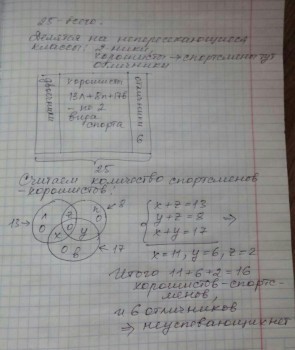 25 - всего.
Делятся на непересекающиеся
классы: 2-ники,
хорошисты → спортсмены тут
отличники
двоечники
хорошисты
13л + 8п + 17в
- по 2
вида
спорта
отличники 6
25
Считаем количество спортсменов
- хорошистов:
13
8
17
л
0
z
п
0
0
x
y
0
в
x+z=13
y+z=8
x+y=17
⇒
x=11, y=6, z=2
Итого 11+6+2=16
хорошистов-спортс-
менов,
и 6 отличников
⇒ неуспевающих нет